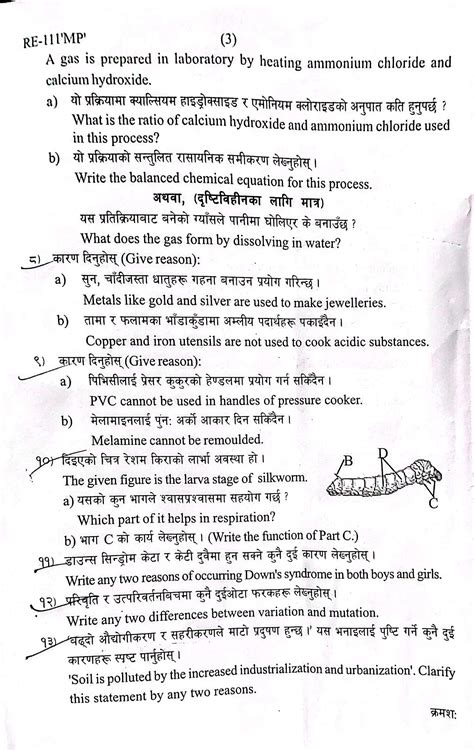 RE-111'MP'
(3)
A gas is prepared in laboratory by heating ammonium chloride and
calcium hydroxide.
a) यो प्रक्रियामा क्याल्सियम हाइड्रोक्साइड र एमोनियम क्लोराइडको अनुपात कति हुनुपर्छ ?
What is the ratio of calcium hydroxide and ammonium chloride used
in this process?
b) यो प्रक्रियाको सन्तुलित रासायनिक समीकरण लेख्नुहोस् ।
Write the balanced chemical equation for this process.
अथवा, (दृष्टिविहीनका लागि मात्र)
यस प्रतिक्रियाबाट बनेको ग्याँसले पानीमा घोलिएर के बनाउँछ ?
What does the gas form by dissolving in water?
८) कारण दिनुहोस् (Give reason):
a) सुन, चाँदीजस्ता धातुहरू गहना बनाउन प्रयोग गरिन्छ ।
Metals like gold and silver are used to make jewelleries.
b) तामा र फलामका भाँडाकुँडामा अम्लीय पदार्थहरू पकाइँदैन ।
Copper and iron utensils are not used to cook acidic substances.
९) कारण दिनुहोस् (Give reason):
a) पिभिसीलाई प्रेसर कुकुरको हेण्डलमा प्रयोग गर्न सकिँदैन ।
PVC cannot be used in handles of pressure cooker.
b) मेलामाइनलाई पुन: अर्को आकार दिन सकिँदैन ।
Melamine cannot be remoulded.
१०) दिइएको चित्र रेशम किराको लार्भा अवस्था हो ।
The given figure is the larva stage of silkworm.
a) यसको कुन भागले श्वासप्रश्वासमा सहयोग गर्छ ?
Which part of it helps in respiration?
b) भाग C को कार्य लेख्नुहोस् । (Write the function of Part C.)
B
D
C
११) डाउन्स सिन्ड्रोम केटा र केटी दुवैमा हुन सक्ने कुनै दुई कारण लेख्नुहोस् ।
Write any two reasons of occurring Down's syndrome in both boys and girls.
१२) परिवृति र उत्परिवर्तनबिचमा कुनै दुईओटा फरकहरू लेख्नुहोस् ।
Write any two differences between variation and mutation.
१३) 'बढ्दो औद्योगीकरण र सहरीकरणले माटो प्रदुषण हुन्छ ।' यस भनाइलाई पुष्टि गर्ने कुनै दुई
कारणहरू स्पष्ट पार्नुहोस् ।
'Soil is polluted by the increased industrialization and urbanization'. Clarify
this statement by any two reasons.
क्रमश: